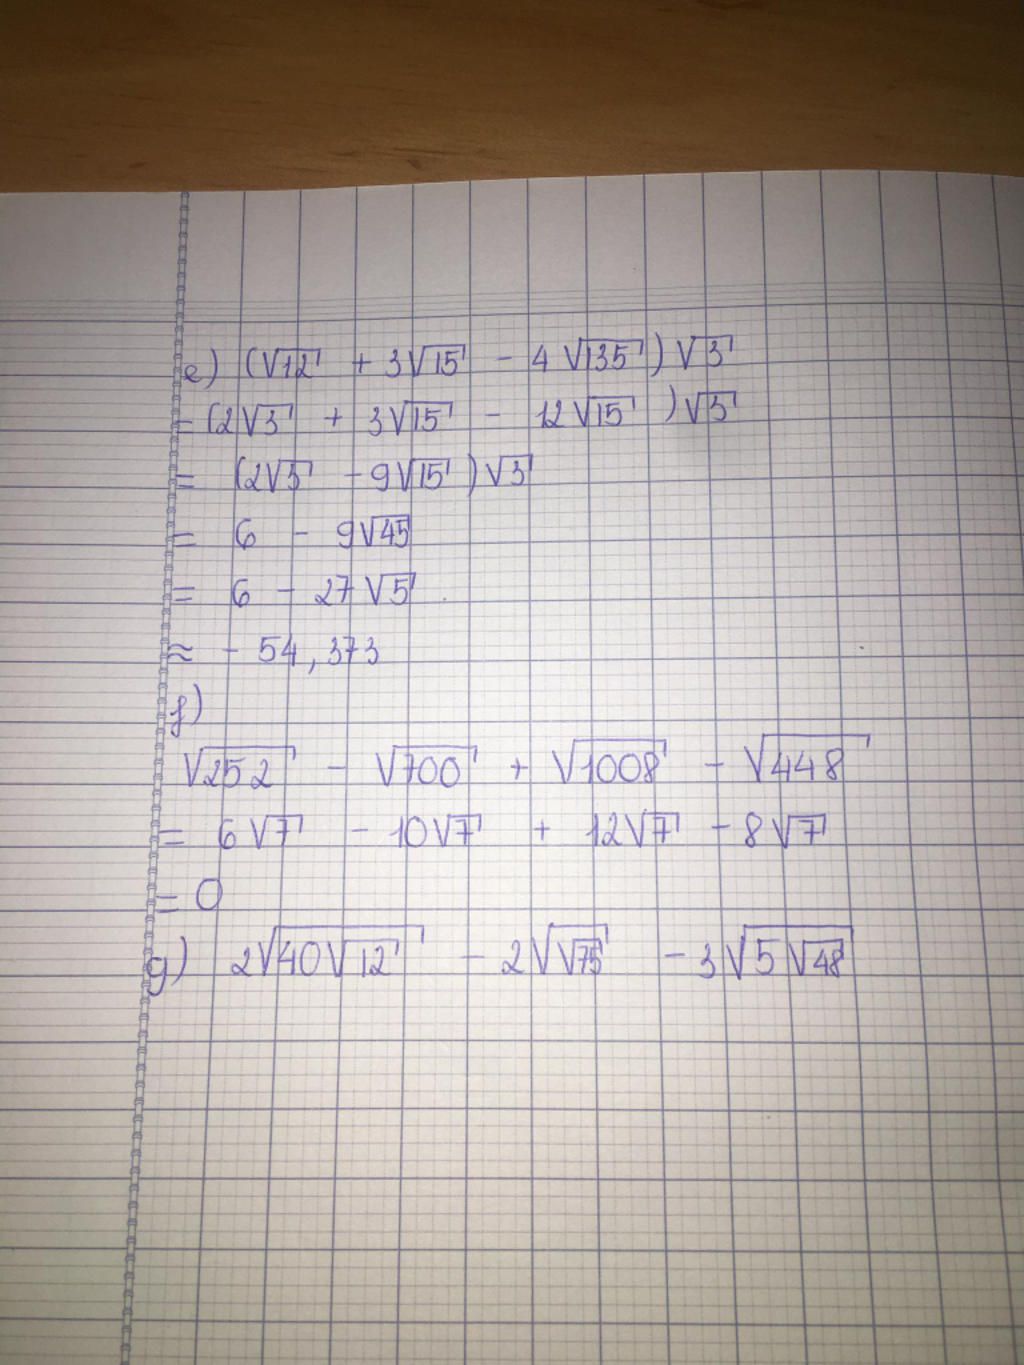 e) (√12 + 3√15 - 4√135)√3
= (2√3 + 3√15 - 12√15)√3
= (2√3 - 9√15)√3
= 6 - 9√45
= 6 - 27√5
≈ - 54,373
f)
√252 - √700 + √1008 - √448
= 6√7 - 10√7 + 12√7 - 8√7
= 0
g) 2√(40√12) - 2√(√75) - 3√(5√48)